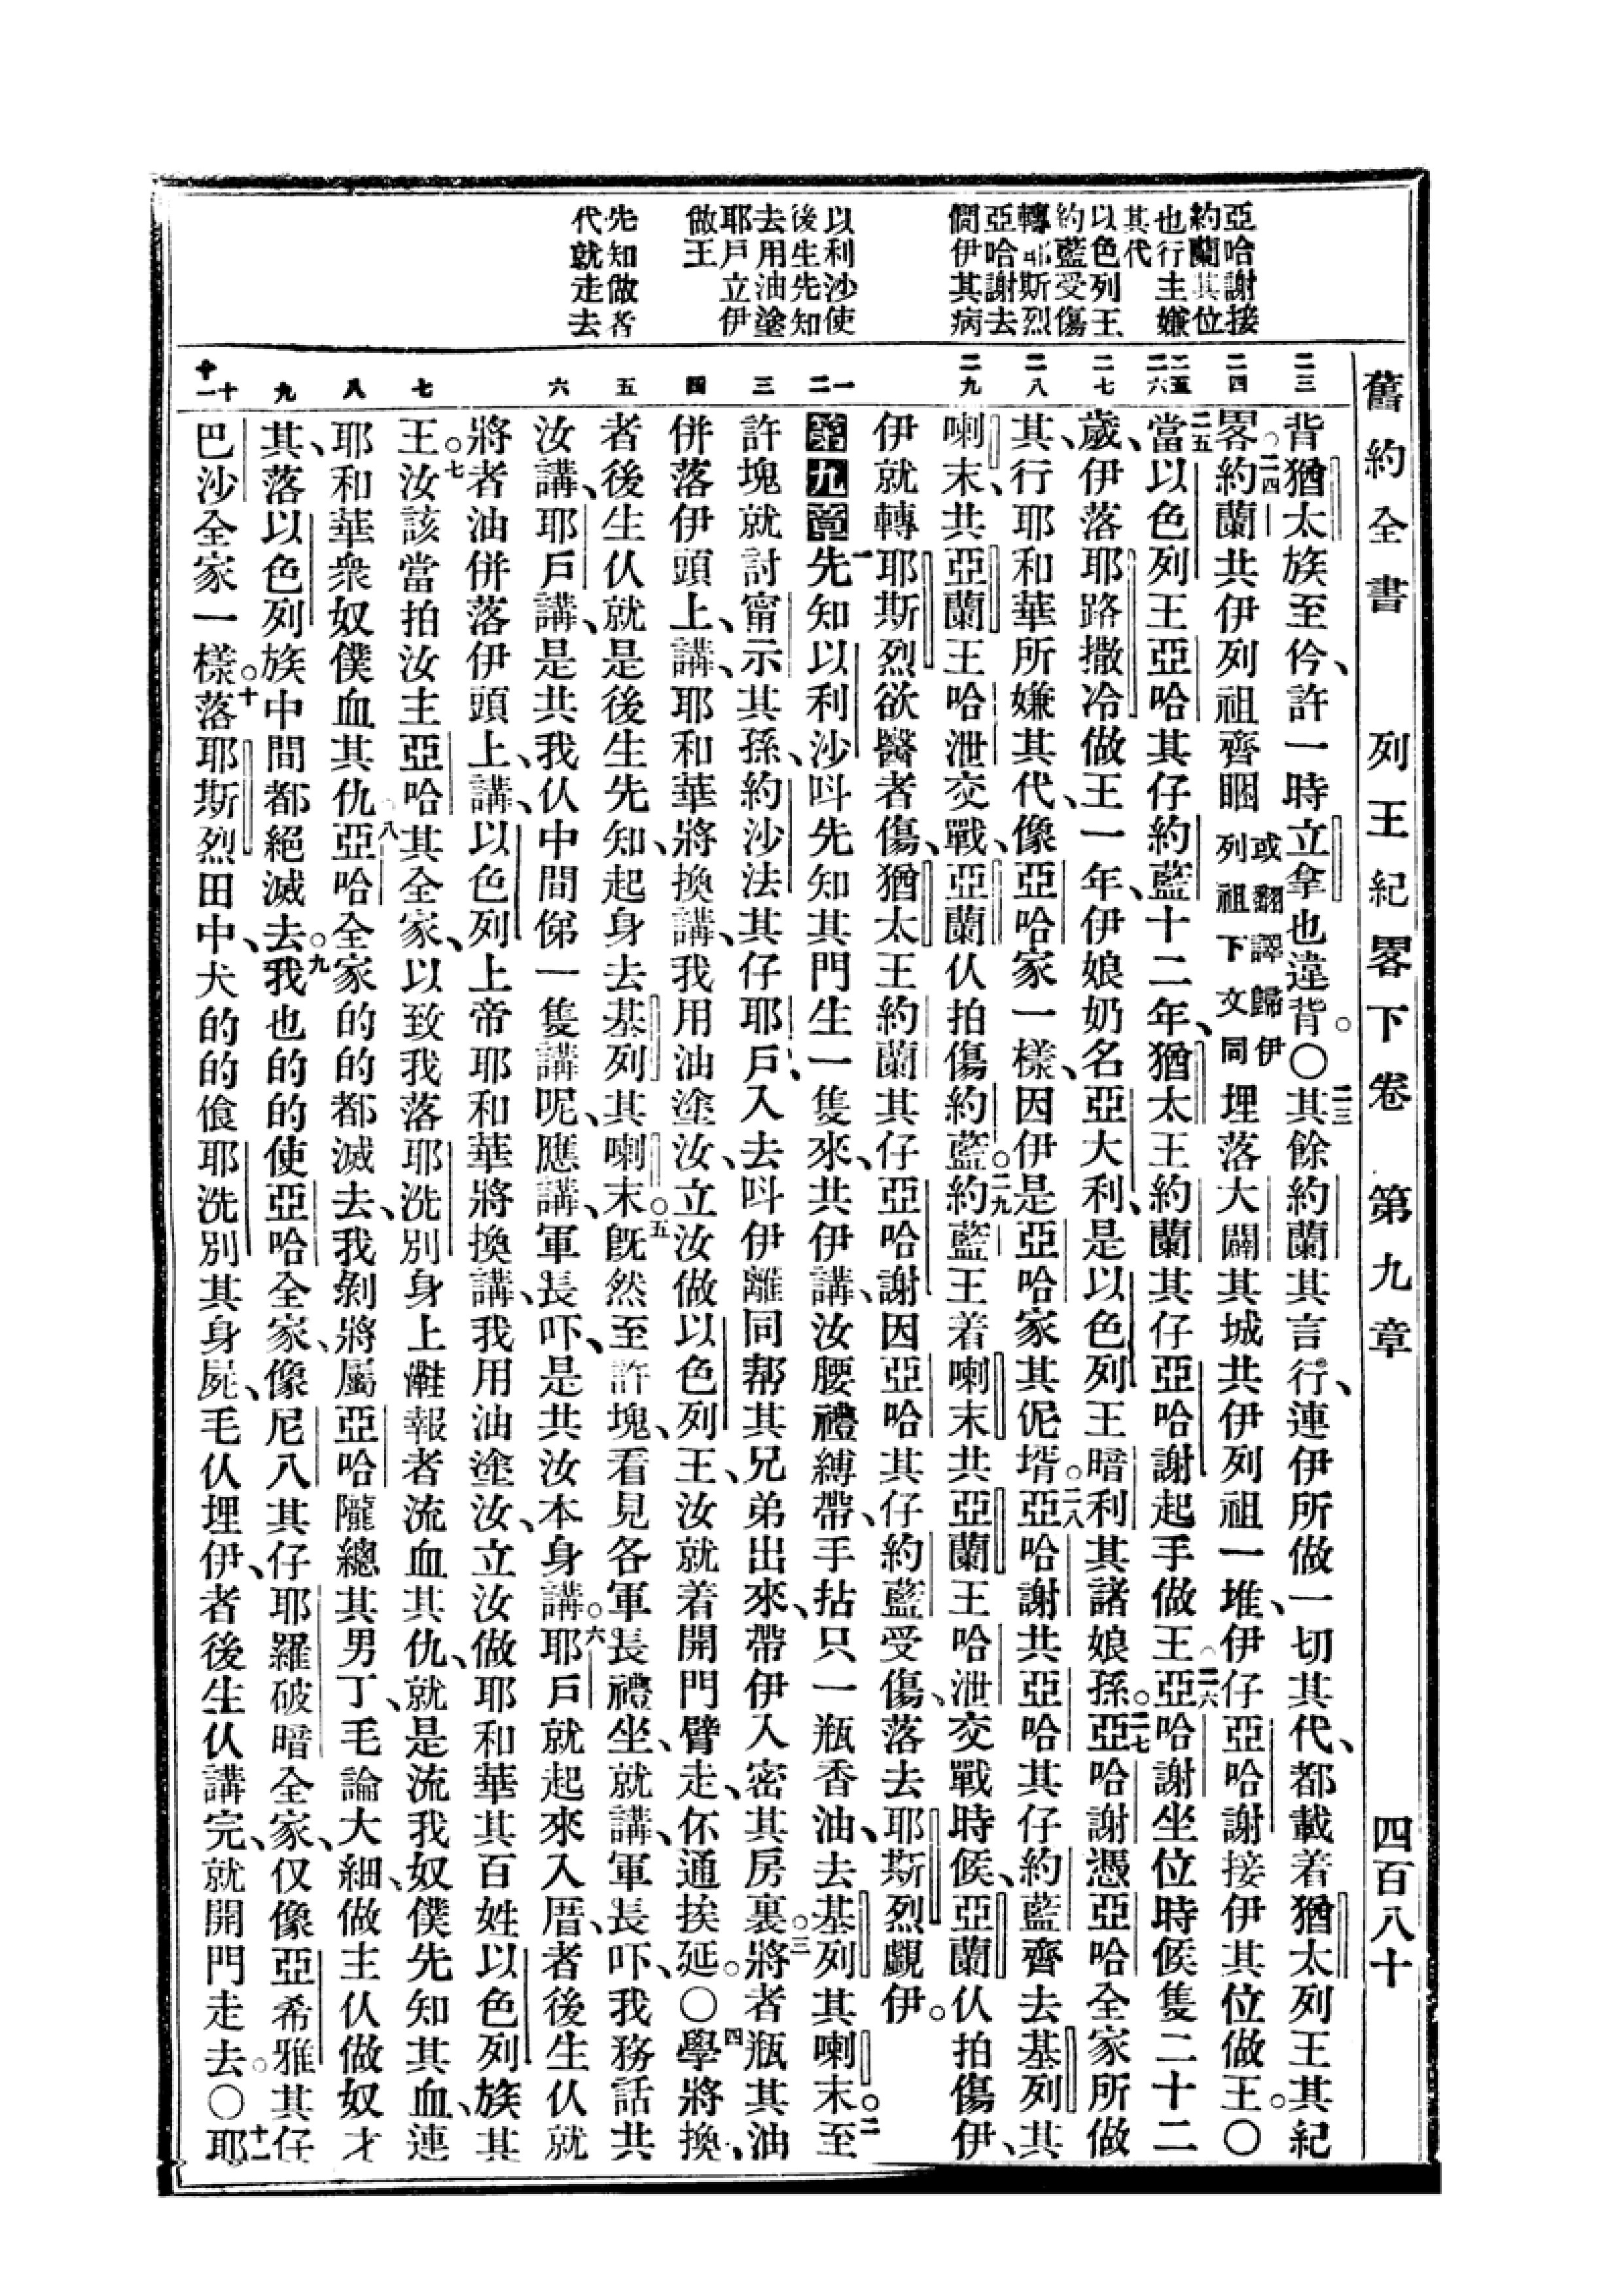 舊約全書 列王紀畧下卷 第九章 四百八十
亞哈謝接
約蘭其位
也行主嫌
其代
以色列王
約藍受傷
轉耶斯烈
亞哈謝去
覷伊其病
以利沙使
後生先知
去用油塗
耶戶立伊
做王
先知做者
代就走去
二三
二四
二五
二六
二七
二八
二九
一
二
三
四
五
六
七
八
九
十
十一
背猶太族至仱、許一時立拿也違背。〇二三其餘約蘭其言行、連伊所做一切其代、都載着猶太列王其紀
畧。二四約蘭共伊列祖齊睏或翻譯歸伊列祖下文同埋落大闢其城共伊列祖一堆、伊仔亞哈謝接伊其位做王。〇
二五當以色列王亞哈其仔約藍十二年、猶太王約蘭其仔亞哈謝起手做王。二六亞哈謝坐位時候隻二十二
歲、伊落耶路撒冷做王一年、伊娘奶名亞大利、是以色列王暗利其諸娘孫。二七亞哈謝憑亞哈全家所做
其、行耶和華所嫌其代、像亞哈家一樣、因伊是亞哈家其伲壻。二八亞哈謝共亞哈其仔約藍齊去基列其
喇末、共亞蘭王哈泄交戰、亞蘭仈拍傷約藍。二九約藍王着喇末共亞蘭王哈泄交戰時候、亞蘭仈拍傷伊、
伊就轉耶斯烈欲醫者傷、猶太王約蘭其仔亞哈謝因亞哈其仔約藍受傷、落去耶斯烈覷伊。
第九章一先知以利沙呌先知其門生一隻來、共伊講、汝腰禮縛帶、手拈只一瓶香油、去基列其喇末。二至
許塊就討甯示其孫、約沙法其仔耶戶、入去呌伊離同帮其兄弟出來、帶伊入密其房裏。三將者瓶其油
併落伊頭上、講、耶和華將換講、我用油塗汝、立汝做以色列王、汝就着開門臂走、伓通挨延。〇四學將換、
者後生仈就是後生先知、起身去基列其喇末。五旣然至許塊、看見各軍長禮坐、就講、軍長吓、我務話共
汝講、耶戶講、是共我仈中間俤一隻講呢、應講、軍長吓、是共汝本身講。六耶戶就起來入厝、者後生仈就
將者油併落伊頭上、講、以色列上帝耶和華將換講、我用油塗汝、立汝做耶和華其百姓以色列族其
王。七汝該當拍汝主亞哈其全家、以致我落耶洗別身上讎報者流血其仇、就是流我奴僕先知其血、連
耶和華衆奴僕血其仇。八亞哈全家的的都滅去、我剝將屬亞哈隴總其男丁、毛論大細、做主仈做奴才
其、落以色列族中間都絕滅去。九我也的的使亞哈全家、像尼八其仔耶羅破暗全家、仅像亞希雅其仔
巴沙全家一樣。十落耶斯烈田中、犬的的飡耶洗別其身屍、毛仈埋伊、者後生仈講完、就開門走去。〇十一耶